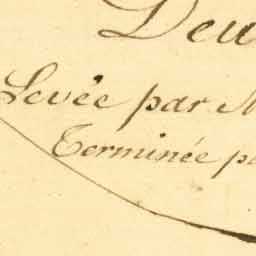 Deu
Levée par M
Terminée pa